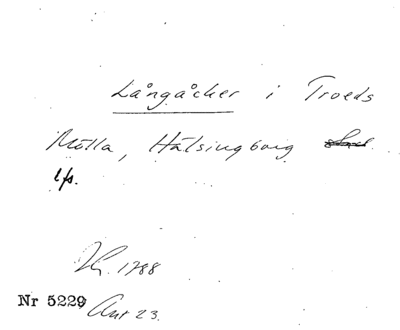 Långåcker i Troeds
Mölla, Hälsingborg
lfs.
1788
Nr 5229
Ant 23.